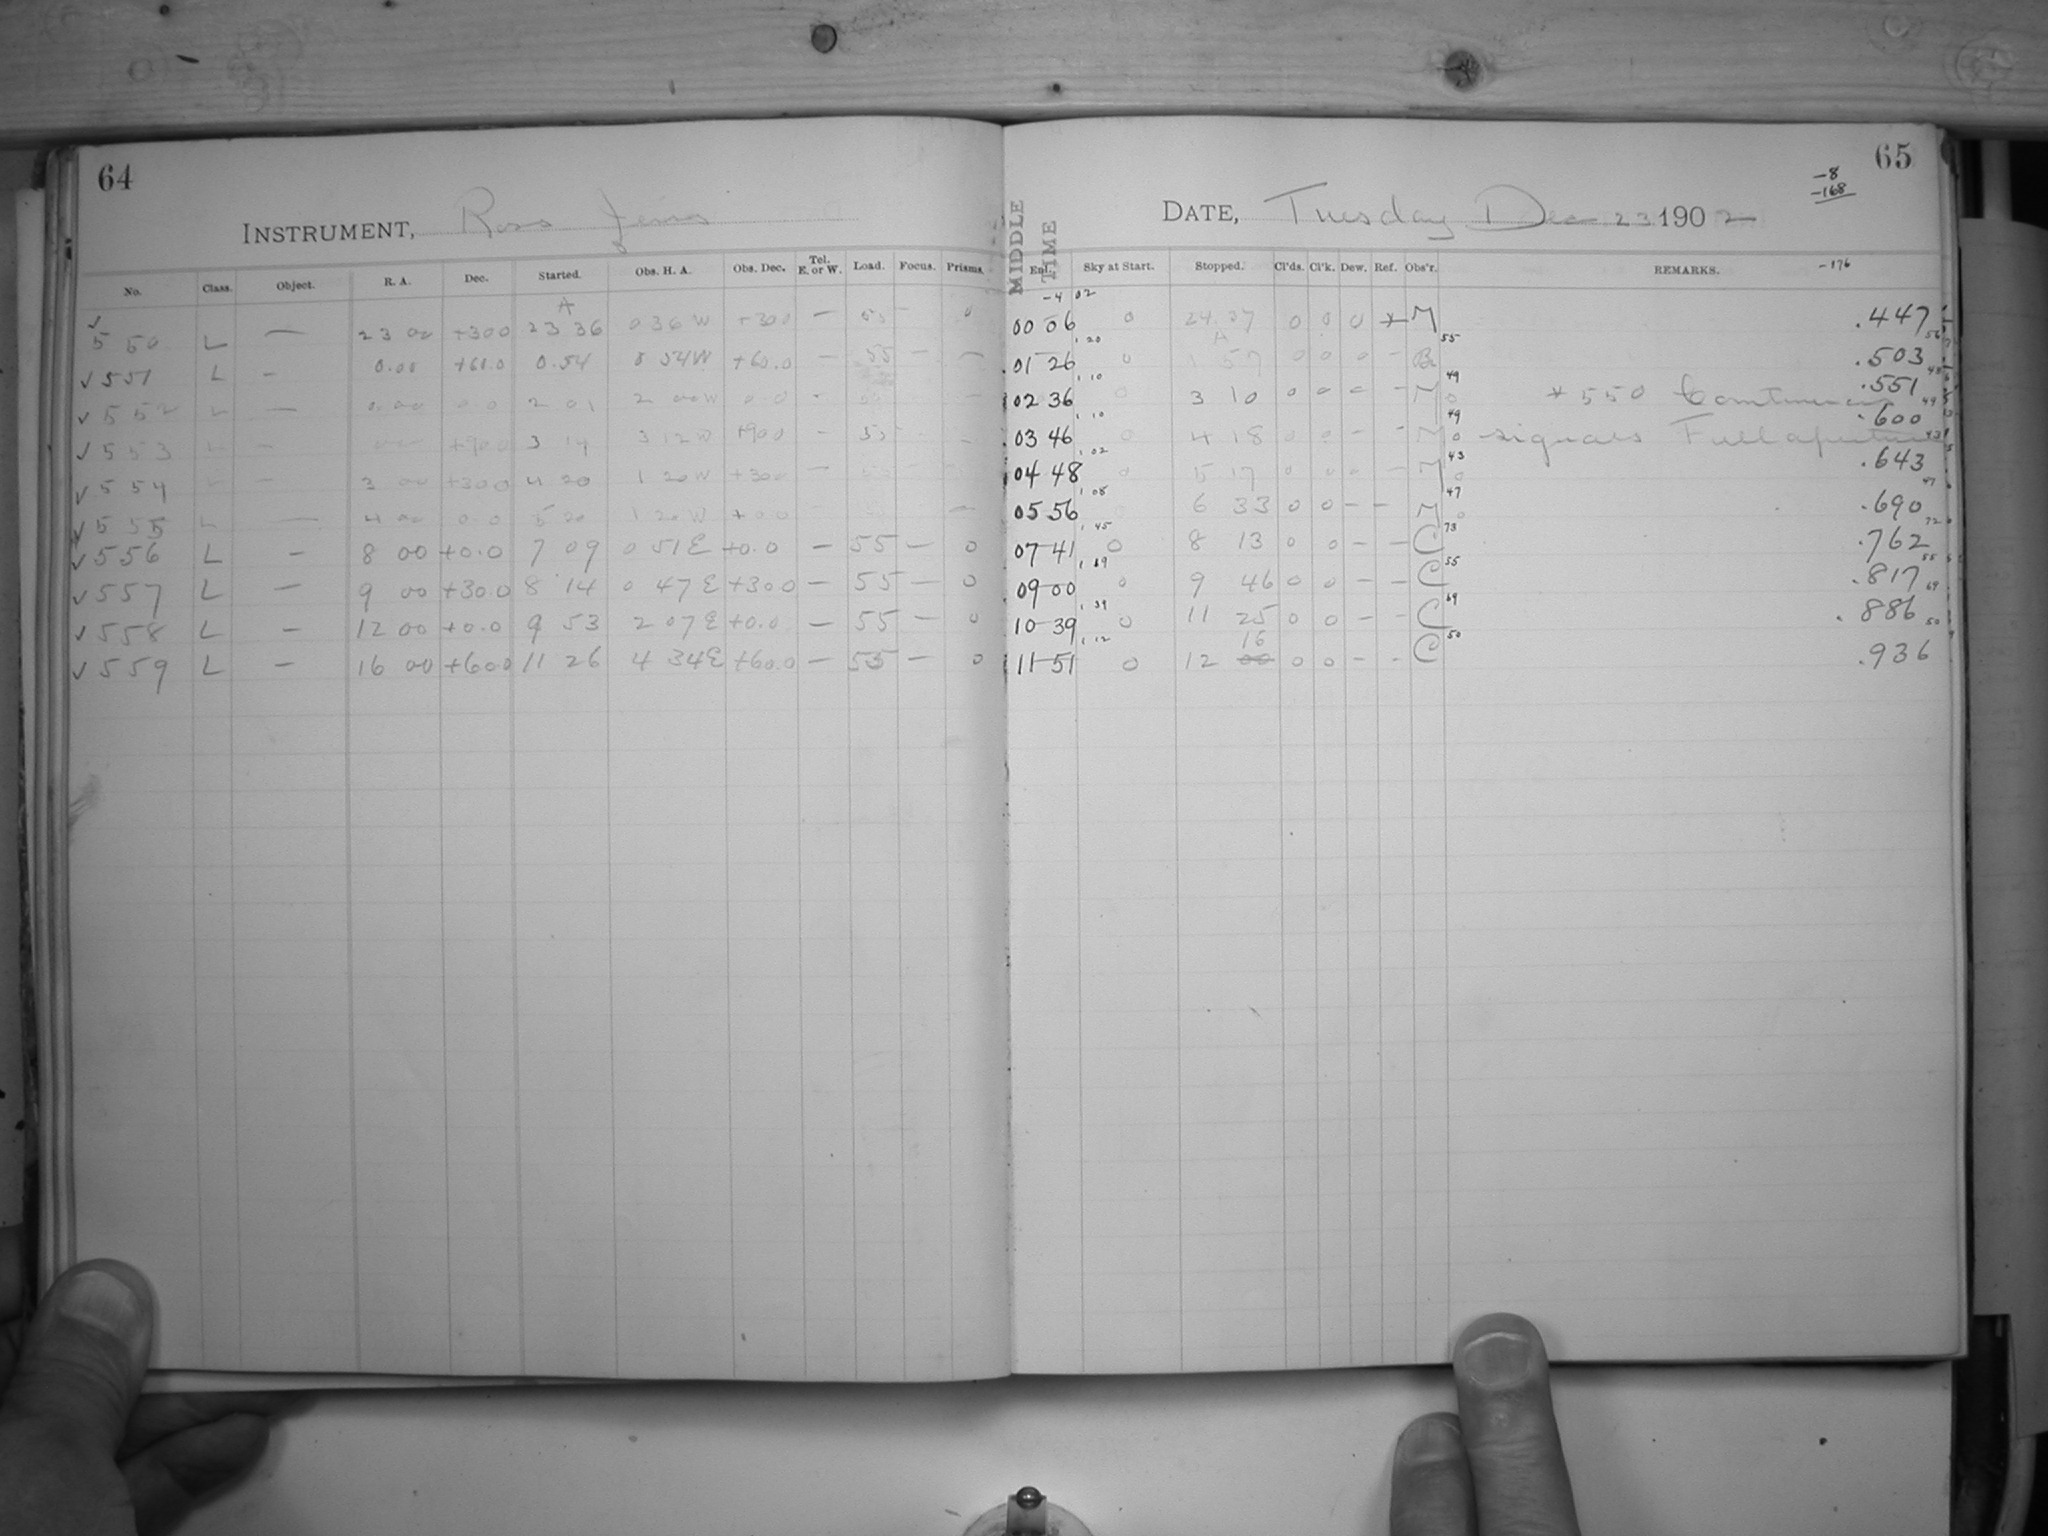 64
INSTRUMENT, Ross Lens
No. Class. Object. R. A. Dec. Started. Obs. H. A. Obs. Dec. Tel. E. or W. Load. Focus. Prisms.
A
✓ 550 L — 23 00 +30 0 23 36 0 36 W +30 0 — 55 — 0
✓ 551 L — 0.00 +60.0 0.54 0 54 W +60.0 — 55 — —
✓ 552 L — 0 00 0 0 2 01 2 00 W 0 0 —
✓ 553 L — +90 0 3 14 3 12 W +90 0 — 55 —
✓ 554 L — 3 00 +30 0 4 20 1 20 W +30 0 —
✓ 555 L — 4 00 0 0 5 20 1 20 W +0 0 —
✓ 556 L — 8 00 +0.0 7 09 0 51 E +0.0 — 55 — 0
✓ 557 L — 9 00 +30.0 8 14 0 47 E +30.0 — 55 — 0
✓ 558 L — 12 00 +0.0 9 53 2 07 E +0.0 — 55 — 0
✓ 559 L — 16 00 +60.0 11 26 4 34 E +60.0 — 55 — 0
65
-8
-168
DATE, Tuesday Dec 23 1902
MIDDLE TIME
Enl. Sky at Start. Stopped. Cl'ds. Cl'k. Dew. Ref. Obs'r. REMARKS. -176
-4 02
00 06 0 24 37 0 0 0 * M .447
1 20 A 55 56
01 26 0 1 57 0 0 0 — .503
1 10 49 48
02 36 0 3 10 0 0 — — M * 550 .551
1 10 49 49
03 46 0 4 18 0 0 — — M signals Full aperture .600
1 02 43 43
04 48 0 5 17 0 0 0 — M .643
1 08 47 47
05 56 6 33 0 0 — — M .690
1 45 73 72
07 41 0 8 13 0 0 — — C .762
1 19 55 55
09 00 0 9 46 0 0 — — C .817
1 39 69 69
10 39 0 11 25 0 0 — — C .886
1 12 16 50 50
11 51 0 12 00 0 0 — — C .936